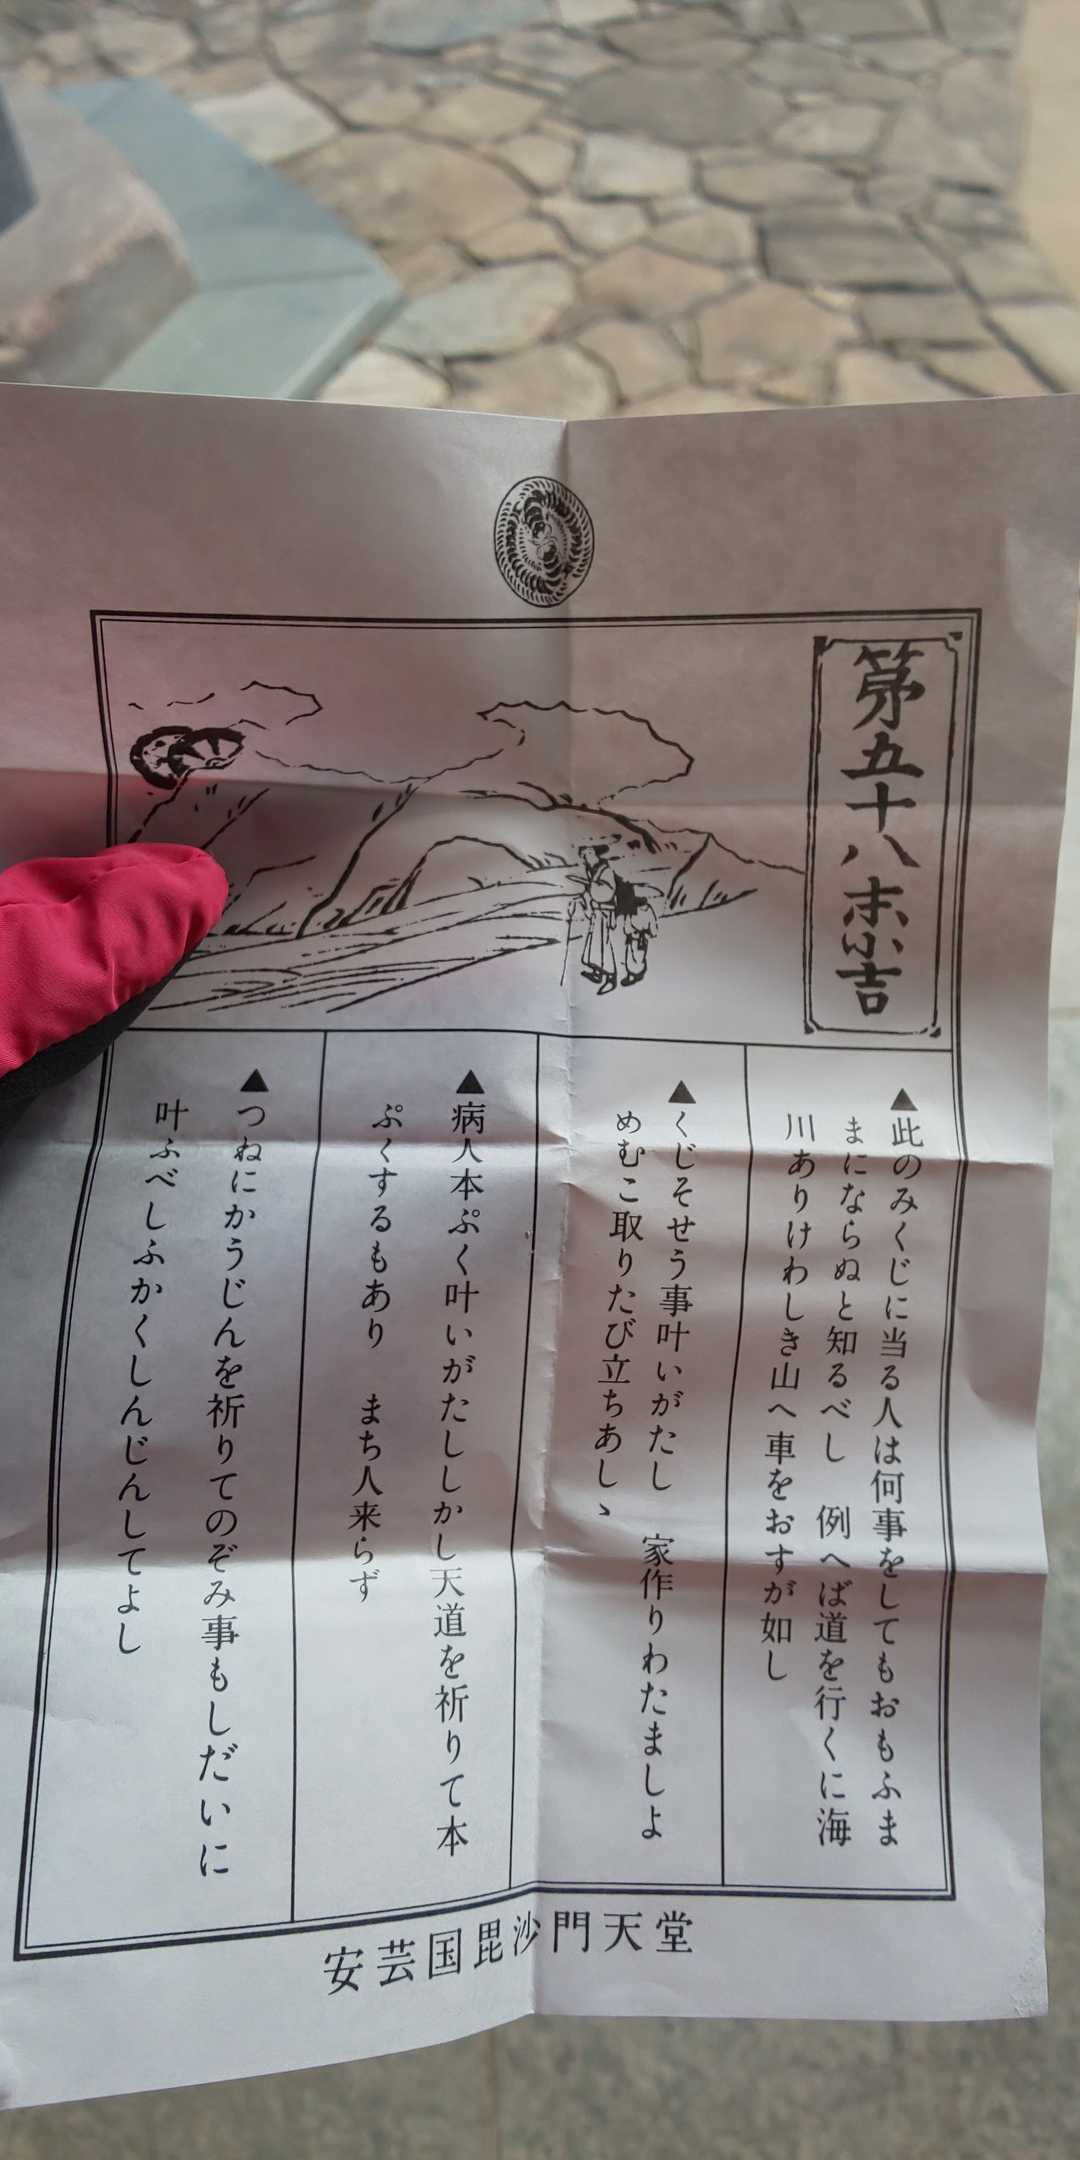 第五十八末小吉
▲此のみくじに当る人は何事をしてもおもふま
まにならぬと知るべし　例へば道を行くに海
川ありけわしき山へ車をおすが如し
▲くじそせう事叶いがたし　家作りわたましよ
めむこ取りたび立ちあしゝ
▲病人本ぷく叶いがたししかし天道を祈りて本
ぷくするもあり　まち人来らず
▲つねにかうじんを祈りてのぞみ事もしだいに
叶ふべしふかくしんじんしてよし
安芸国毘沙門天堂